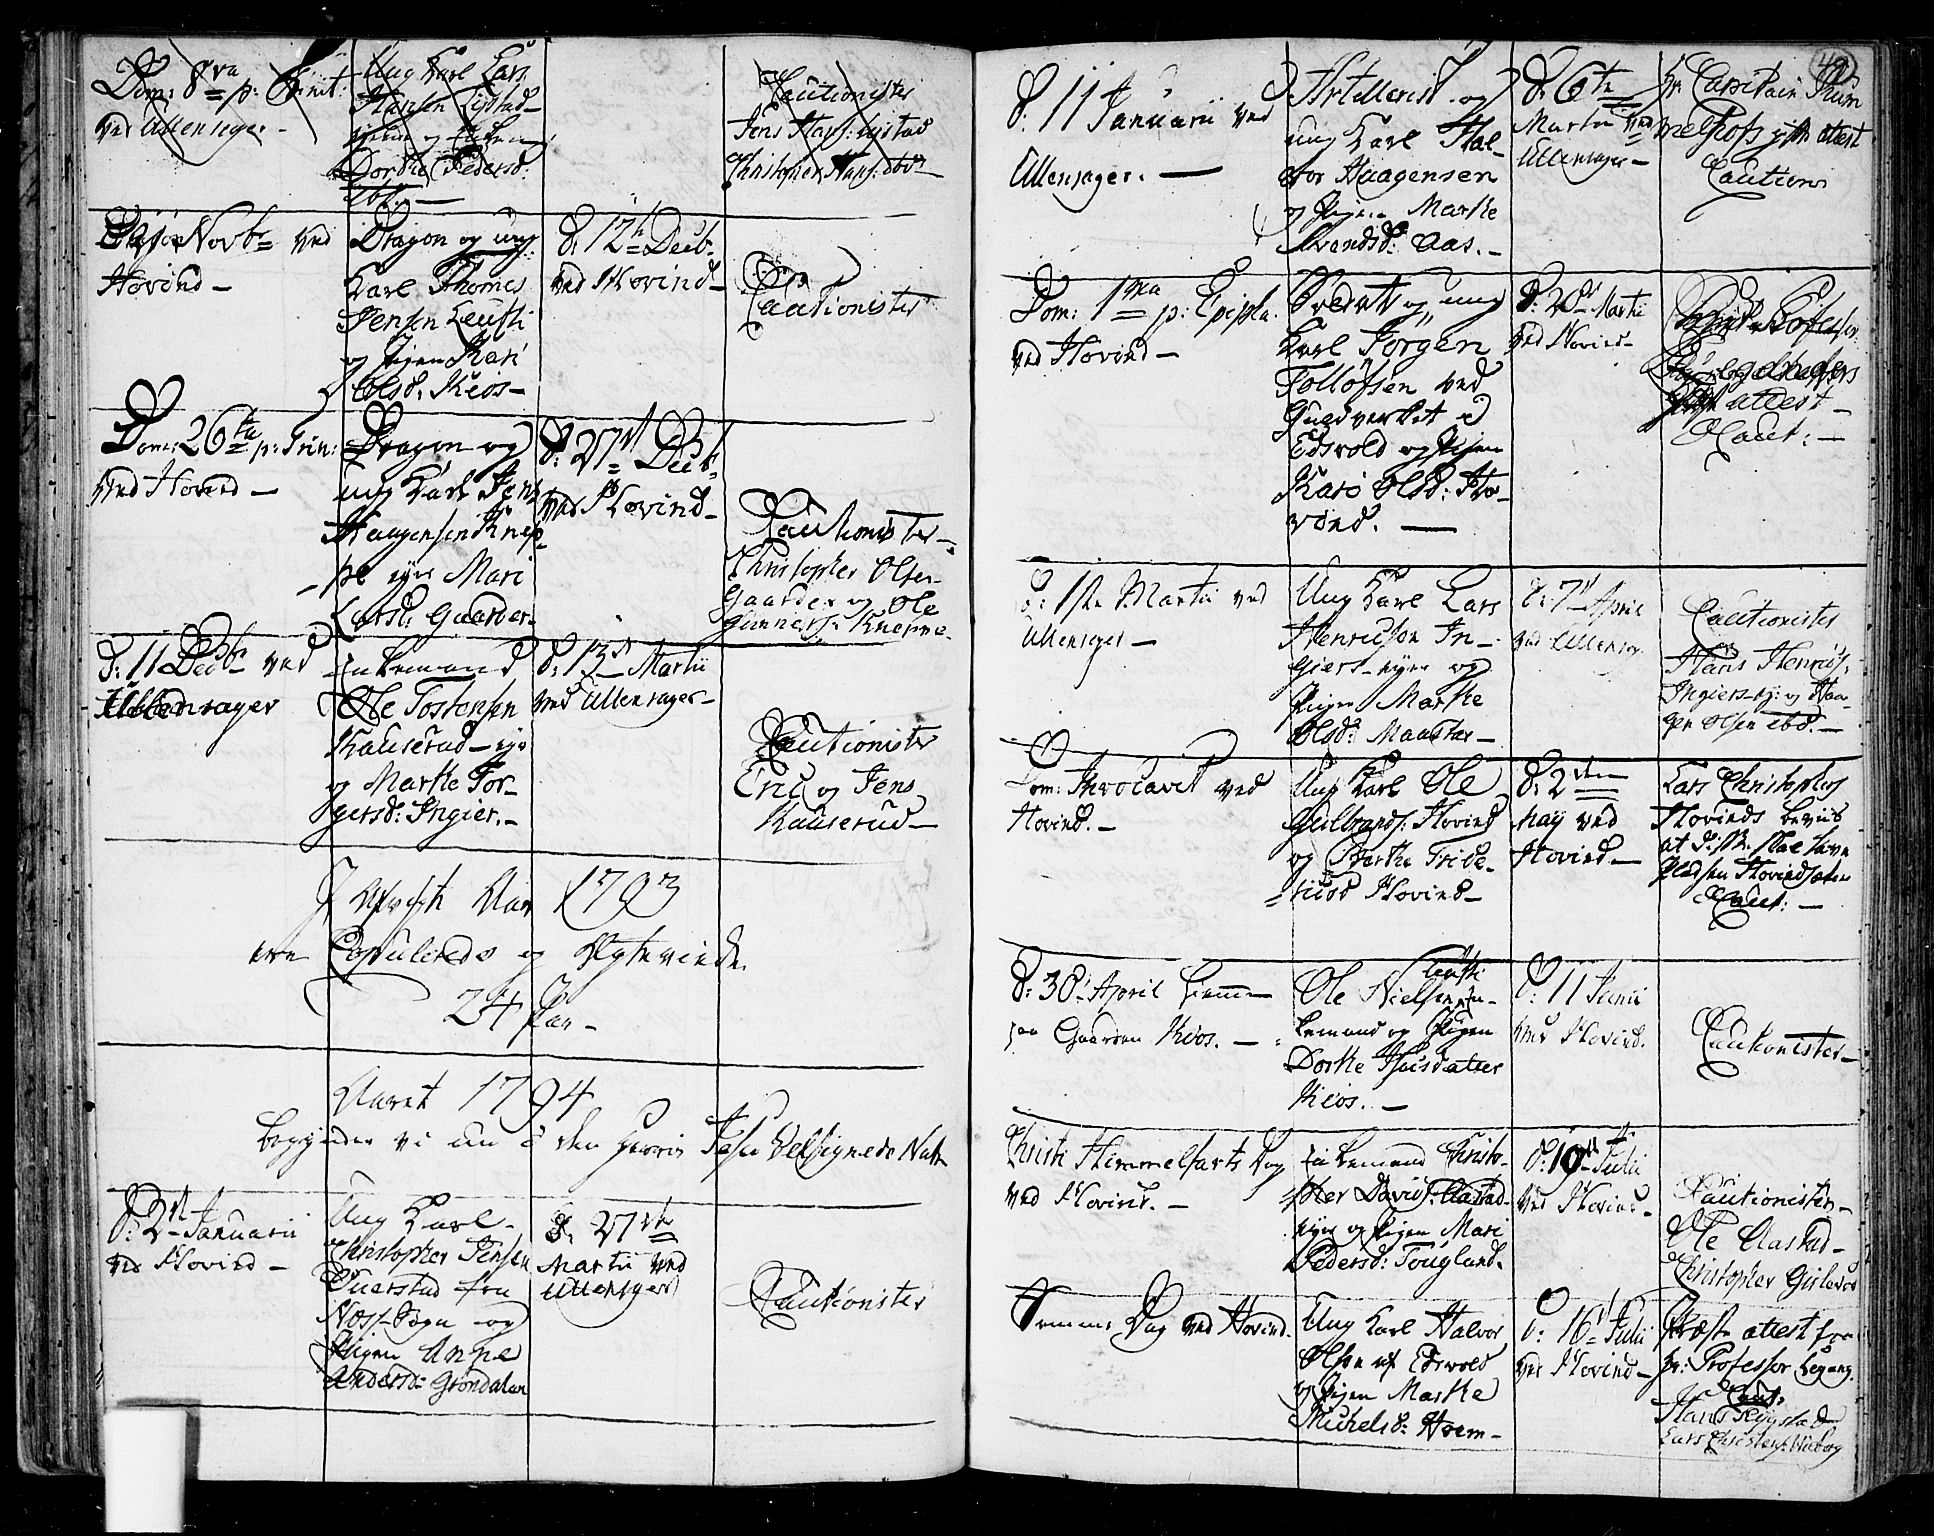 Dom: 8va p: Trinit:
ved Ullensager -
Ung Karl Lars
Hansen Ljøstad
og
Dorthe Peders:
ibd. -
Cautionister
Jens Hans: Ljøstad
Christopher Hans: ibd.
Novbr ved
Hovind -
Dragon og ung
Karl Thomes
Jensen Leufti
og Pigen Kari
Olsd: Kios -
d: 12te Decb:
ved Hovind -
Cautionister
Dom: 26ta p: Trin:
ved Hovind -
Dragon og
ung Karl Jens
Haagensen Knep-
pe Mari
Larsd: Gaarder -
d: 27de Decb:
ved Hovind -
Cautionister -
Christopher Olsen
Gaarder og Ole
Gunners: Kneppe -
d: 11 Decbr ved
Ullensager
Enkemand
Ole Tostensen
Kauserud - eye
og Marthe Tor-
gersd: Ingier. -
d: 13de Martii
ved Ullensager -
Cautionister
Eric og Jens
Kauserud -
Aar 1793
ere Copulerede og Ægteviede
24 Par -
Aaret 1794
begynder vi nu i den Herris Jesu Velsignede Nafn
d: 2de Januarii
ved Hovind -
Ung Karl -
Christopher Jensen
fra
Næss-Sogn og
Pigen Anne
Andersd: Grøndalen
d: 27de
Martii ved
Ullensager
Cautionister
d: 11 Januarii ved
Ullensager. -
Artillerist og
ung Karl Hal-
vor Haagensen
og Pigen Marthe
Svendsd: Aas. -
d: 6te
Martii ved
Ullensager -
Hr Capitain Rum
melhofs attest
Cautions
Dom: 1ma p: Epipha.
ved Hovind -
Soldat og ung
Karl Jørgen
Tollofsen ved
Guldverket i
Edsvold og Pigen
Kari Olsd: Ho-
vind. -
d: 20de Martii
ved Hovind -
attest -
Caut: -
d: 1ste Martii ved
Ullensager -
Ung Karl Lars
Henrichsen In-
gier eye og
Pigen Marthe
Olsd: Maastar -
d: 7de April
ved Ullensag:
Cautionister
Hans Henrichs:
Ingier ey: og Haa-
gen Olsen ibd. -
Dom: Invocavit ved
Hovind. -
Ung Karl Ole
Gulbrands: Hovind
og Berthe Fride-
richsd Hovind -
d: 2den
May ved
Hovind -
Lars Christophers
Hovinds beviis
at skal have
Pladsen Hovindsæter
Caut: -
d: 30te April hiemme
paa Gaarden Kios. -
Ole Nielsen Leufti En-
kemand og Pigen
Dorthe Huusdatter
Kios. -
d: 11 Junii
ved Hovind.
Cautionister -
Christi Himmelfarts Dag
ved Hovind. -
Enkemand Christo-
pher Davids: Aastad
eye og Pigen Mari
Pedersd: Fougland.
d: 10de Julii
ved Hovind -
Cautionister -
Ole Aastad -
Christopher Gislevol
Samme Dag ved Hovind.
Ung Karl Halvor
Olsen af Edsvold
og Pigen Marthe
Michelsd: Hvem -
d: 16de Julii
ved Hovind -
Præste attest fra
Hr: Professor Leganger
Caut:
Hans Rygstad
Lars Christoph: Wiborg